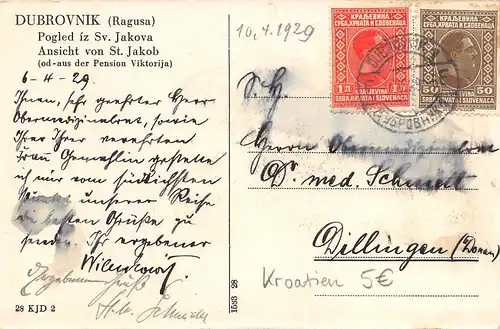 DUBROVNIK (Ragusa)
Pogled iz Sv. Jakova
Ansicht von St. Jakob
(od-aus der Pension Viktorija)
6-4-29.
Ihnen, sehr geehrter Herr
Obermedizinalrat, sowie
Ihrer verehrten
Frau Gemahlin gestatte
ich mir vom südlichsten
Punkte unserer Reise
die besten Grüße zu
senden. Ihr ergebener
Ergebenen Gruß
28 KJD 2
1533 28
10.4.1929
КРАЉЕВИНА
СРБА,ХРВАТА И СЛОВЕНАЦА
1Д 1D
KRALJEVINA
SRBA,HRVATA I SLOVENACA
КРАЉЕВИНА
СРБА,ХРВАТА И СЛОВЕНАЦА
50 50
KRALJEVINA
SRBA,HRVATA I SLOVENACA
ДУБРОВНИК
S. H.
Herrn
Dr. med. Schmidt
Dillingen (Donau)
Kroatien 5€